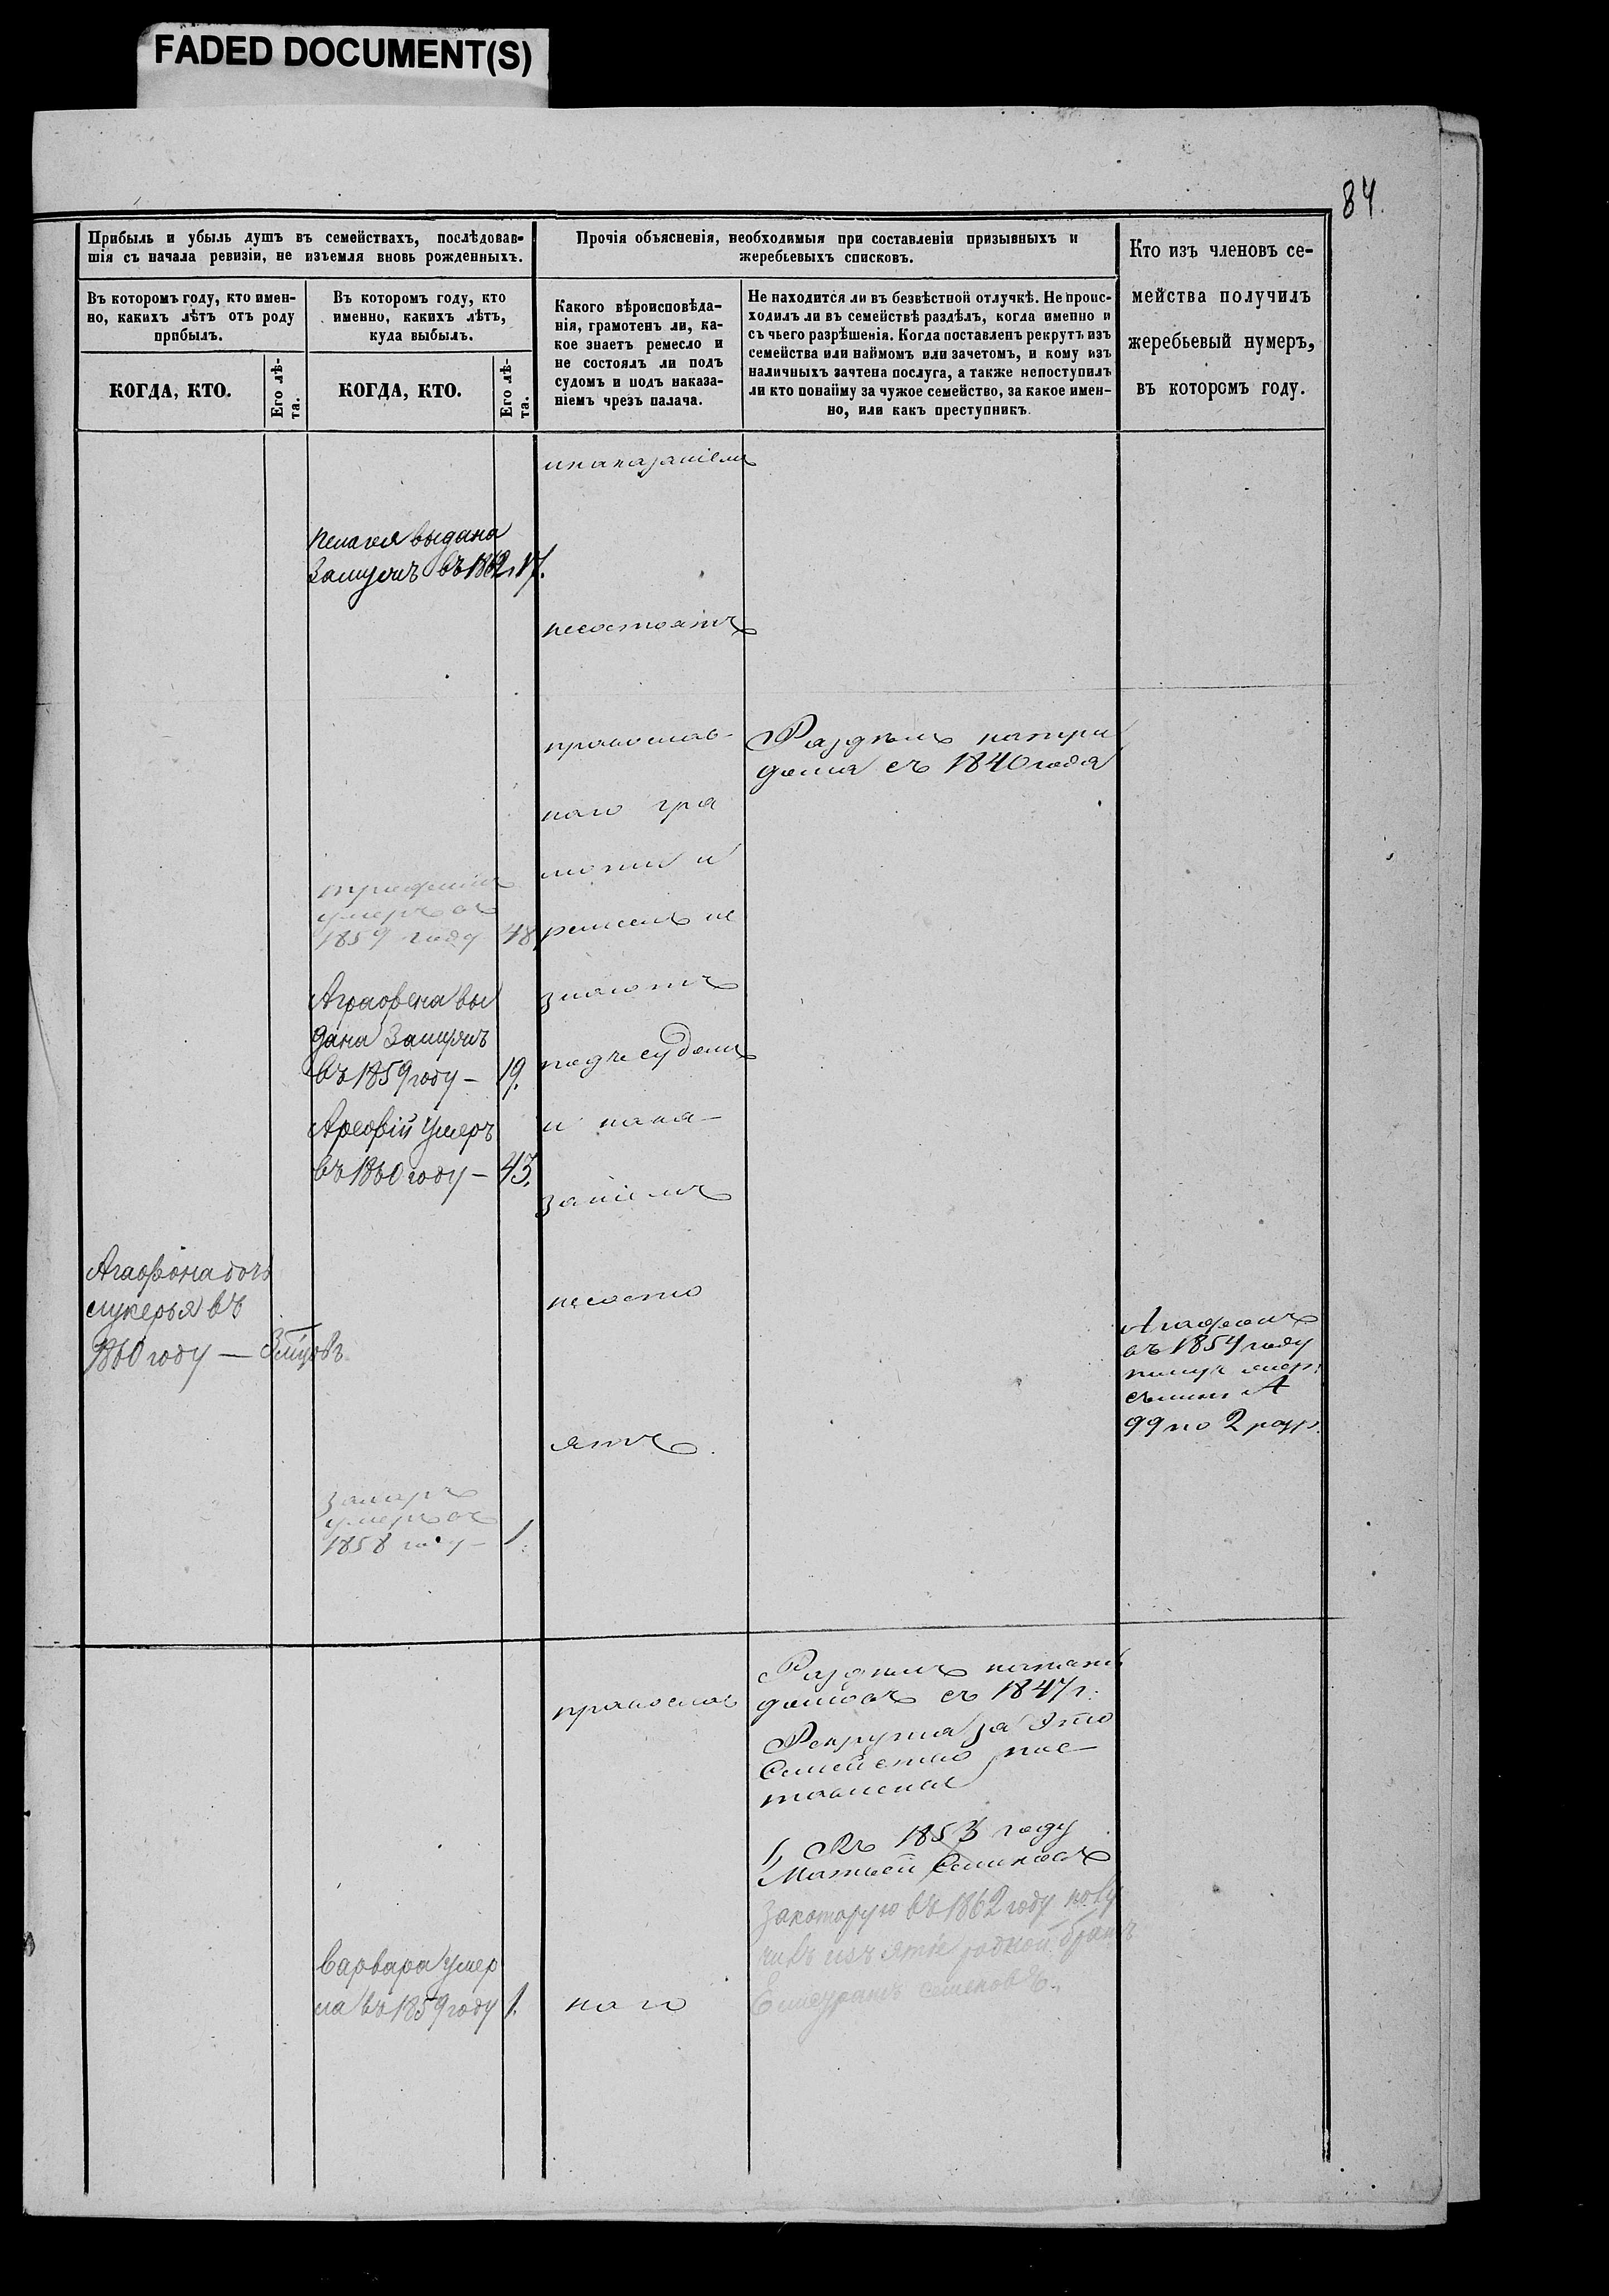 FADED DOCUMENT(S)
84.
Прибыль и убыль душъ въ семействахъ, послѣдовав-
шія съ начала ревизіи, не изъемля вновь рожденныхъ.
Въ которомъ году, кто имен-
но, какихъ лѣтъ отъ роду
прибылъ.
КОГДА, КТО.
Его лѣ-
та.
Въ которомъ году, кто
именно, какихъ лѣтъ,
куда выбылъ.
КОГДА, КТО.
Его лѣ-
та.
Прочія объясненія, необходимыя при составленіи призывныхъ и
жеребьевыхъ списковъ.
Какого вѣроисповѣда-
нія, грамотенъ ли, ка-
кое знаетъ ремесло и
не состоялъ ли подъ
судомъ и подъ наказа-
ніемъ чрезъ палача.
Не находится ли въ безвѣстной отлучкѣ. Не проис-
ходилъ ли въ семействѣ раздѣлъ, когда именно и
съ чьего разрѣшенія. Когда поставленъ рекрутъ изъ
семейства или наймомъ или зачетомъ, и кому изъ
наличныхъ зачтена послуга, а также непоступилъ
ли кто понайму за чужое семейство, за какое имен-
но, или какъ преступникъ.
Кто изъ членовъ се-
мейства получилъ
жеребьевый нумеръ,
въ которомъ году.
инаказаніемъ
Пелагея выдана
Замужъ въ 1862 17.
несостоятъ
православ-
Раздѣлъ натри
дома съ 1840 года
наго гра
моти и
умеръ въ
1859 году 48
ремесла не
Аграфена вы
дана Замужъ
въ 1859 году – 19.
знаютъ
подъ судомъ
Арефій Умеръ
въ 1860 году – 43.
и нака-
заніемъ
Агафона дочь
Лукерья въ
1860 году —
несосто
Агафонъ
въ 1854 году
99 по 2 разр.
ятъ
умеръ въ
1858 году – 1.
православ
Раздѣлъ
домовъ съ 1847 г.
Рекрута за Это
Семейство пос-
тавлена
1, Въ 1853 году
Матвей Семеновъ
Закоторую въ 1862 году полу
чилъ родной братъ
Семеновъ.
Варвара умер
ла въ 1859 году 1.
наго